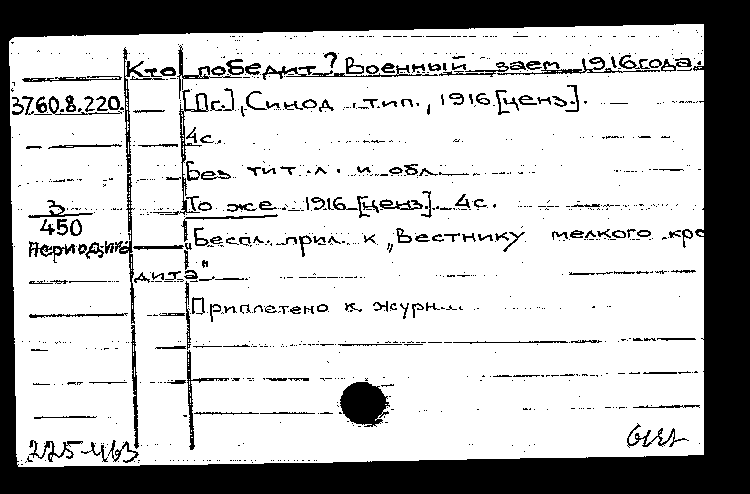 Кто победит? Военный заем 1916 года.
3760.8.220. [Пг.], Синод. тип., 1916 [ценз.].
4с.
Без тит. л. и обл.
То же. 1916 [ценз]. 4с.
З
450
"Беспл. прил. к „Вестнику мелкого кре
Периодика
дита"
Приплетено к журн.
225-463